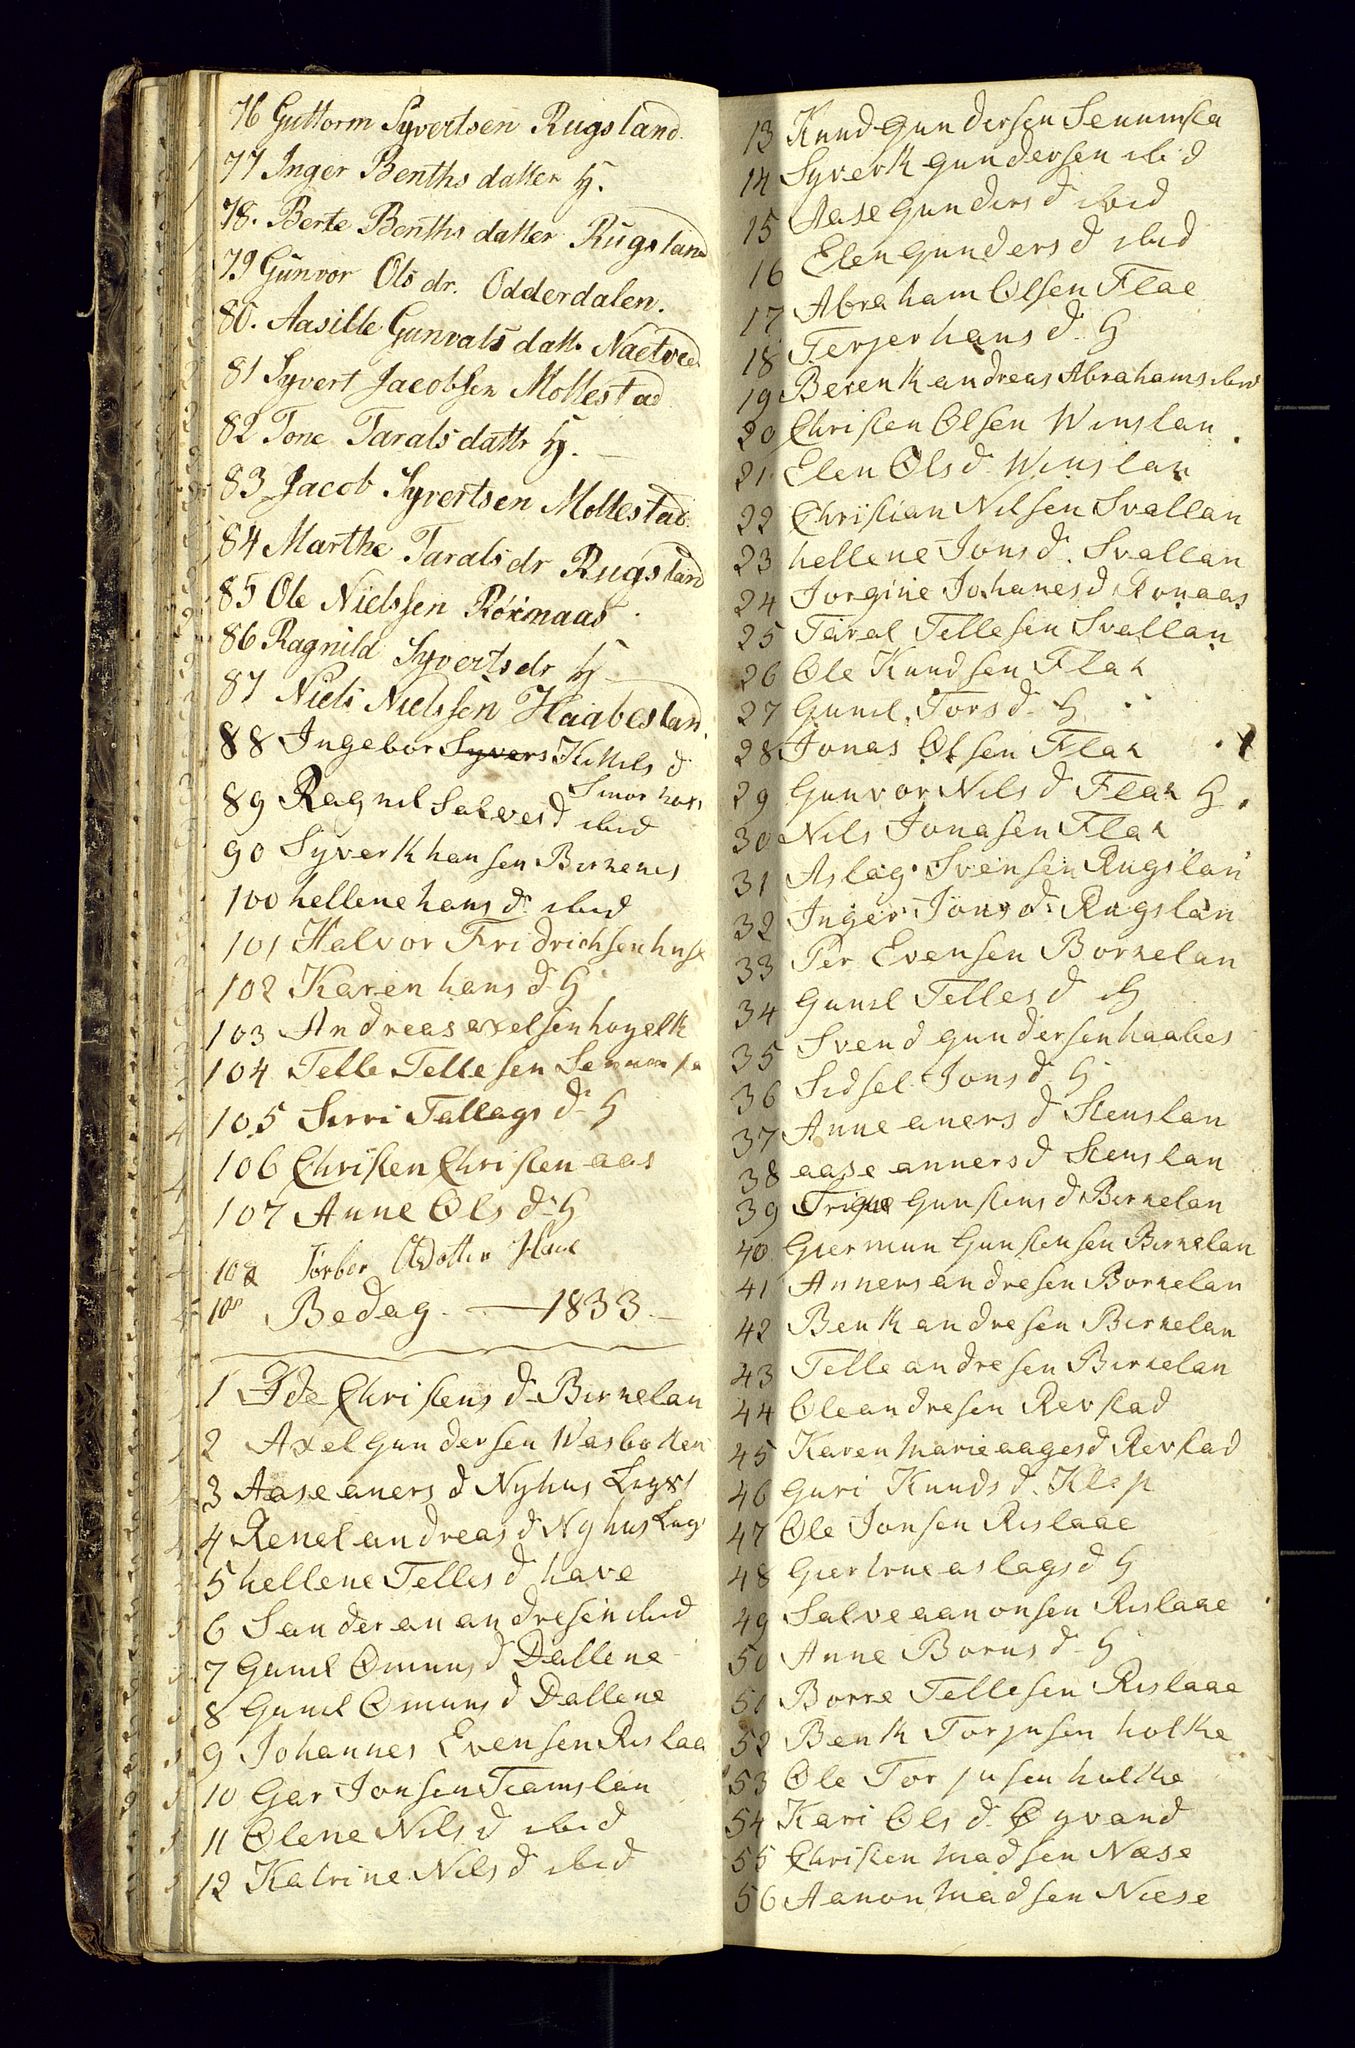 76 Guttorm Syvertsen Rugsland.
77 Inger Benths datter H.
78. Berte Benths datter Rugsland
79 Gunvor Ols dr. Odderdalen.
80. Aasille Gunvals datt. Naetved
81 Syvert Jacobsen Mollestad
82 Tone Tarals dattr H.
83 Jacob Syvertsen Mollestad.
84 Marthe Tarals dr Rugsland
85 Ole Nielssen
86 Ragnild Syverts dr H
87 Niels Nielssen Haabesland.
88 Ingebor Syvers Kittils d
89 Ragnil Salves d ibid
90 Syverth hansen Birkenes
100 hellene hans d ibid
101 Halvor Fridrichsen
102 Karen hans d H
103 Andreas axelsen
104 Telle Tellesen
105 Sirri Tallags d H
106 Christen Christen aas
107 Anne Ols d H
108
Bedag. — 1833 —
1 Christens d Birkelan
2 Axel Gundersen Wasboken
3 Aase aners d Nyhus
4 Renel andreas d Nyhus
5 hellene Telles d have
6 Sanderan andresen ibid
7 Gunil Omuns d Dallene
8 Gunil Omuns d Dallene
9 Johannes Evensen Rislaa
10 Gar Jonsen Teamslan
11 Olene Nils d ibid
12 Katrine Nils d ibid
13 Knud Gundersen
14 Syverth gundersen ibid
15 Aase gunders d ibid
16 Elen Gunders d ibid
17 Abraham Olsen Flae
18 Terjer hans d H
19 Berenth andreas Abrahams ibid
20 Christen Olsen Winslan.
21 Elen Ols d Winslan
22 Christian Nilsen Svallan
23 hellene Jons d. Svallan
24 Jorgine Johanes d Ronaas
25 Taral Tellesen Svallan
26 Ole Knudsen Flak
27 Gunil Tors d H
28 Jonas Olsen Flak
29 Gunvor Nils d Flak H.
30 Nils Jonasen Flak
31 Aslag Svensen Rugslan
32 Inger Jons d Rugslan
33 Per Evensen Borkelan
34 Gunil Telles d H
35 Svend gundersen haabes
36 Sidsel Jons d H
37 Anne aners d Stenslan
38 aase anners d Stenslan
39 Gunstens d Birkelan
40 Giermun Gunstensen Birkelan
41 Anners andresen Borkelan
42 Benth andresen Birkelan
43 Telle andresen Birkelan
44 Ole andresen Revstad
45 Karen Marie aages d Revstad
46 Guri Knuds d. Klep
47 Ole Jonsen Rislaae
48 Giertrue aslags d H
49 Salve aanonsen Rislaae
50 Anne Borus d H
51 Borre Tellesen Rislaae
52 Benth Torjusen holthe
53 Ole Torjusen holthe
54 Kari Ols d Øyvand
55 Christen Madsen Næse
56 Aanon Madsen Niese